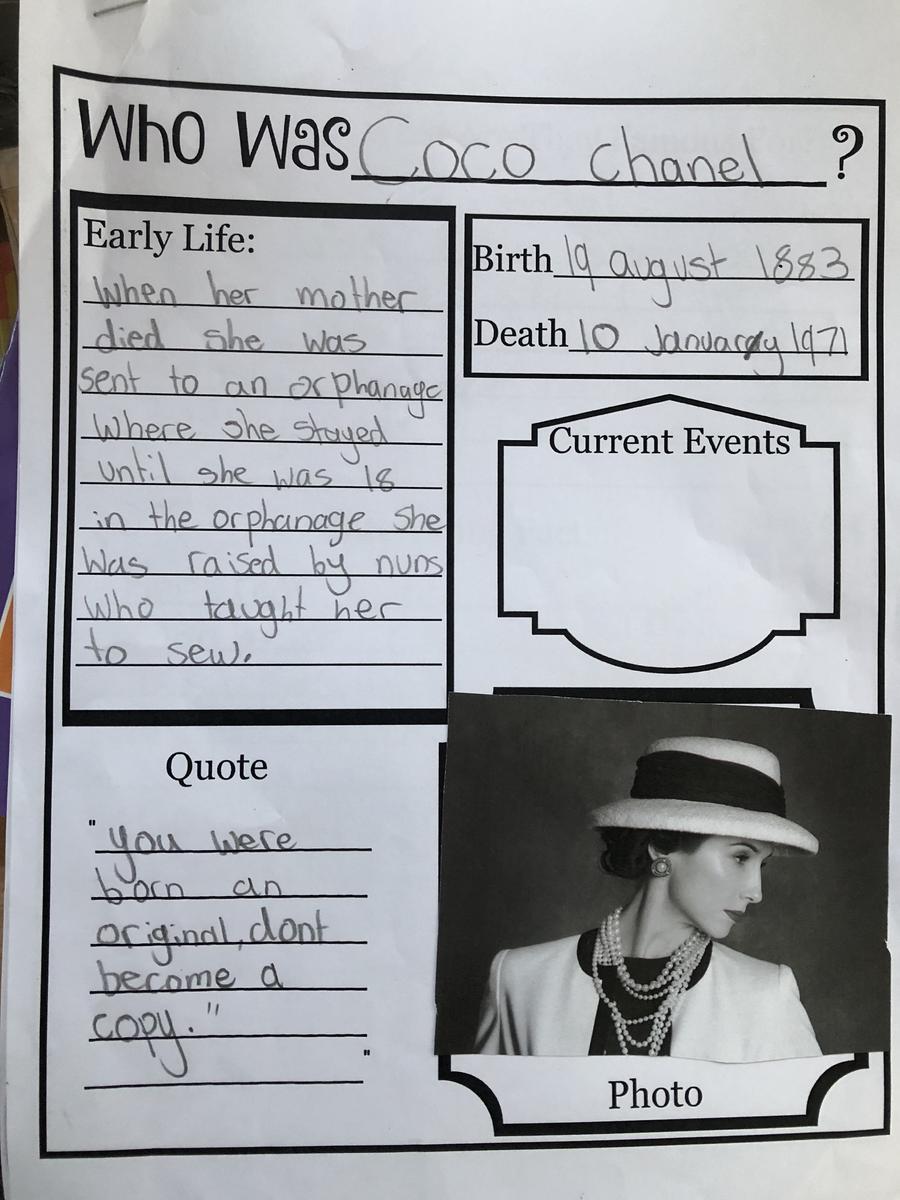 Who Was Coco Chanel ?
Early Life:
When her mother
died she was
sent to an orphanage
Where she stayed
until she was 18
in the orphanage she
Was raised by nuns
who taught her
to sew.
Birth 19 august 1883
Death 10 January 1971
Current Events
Quote
"you were
born an
original, dont
become a
copy."
"
Photo